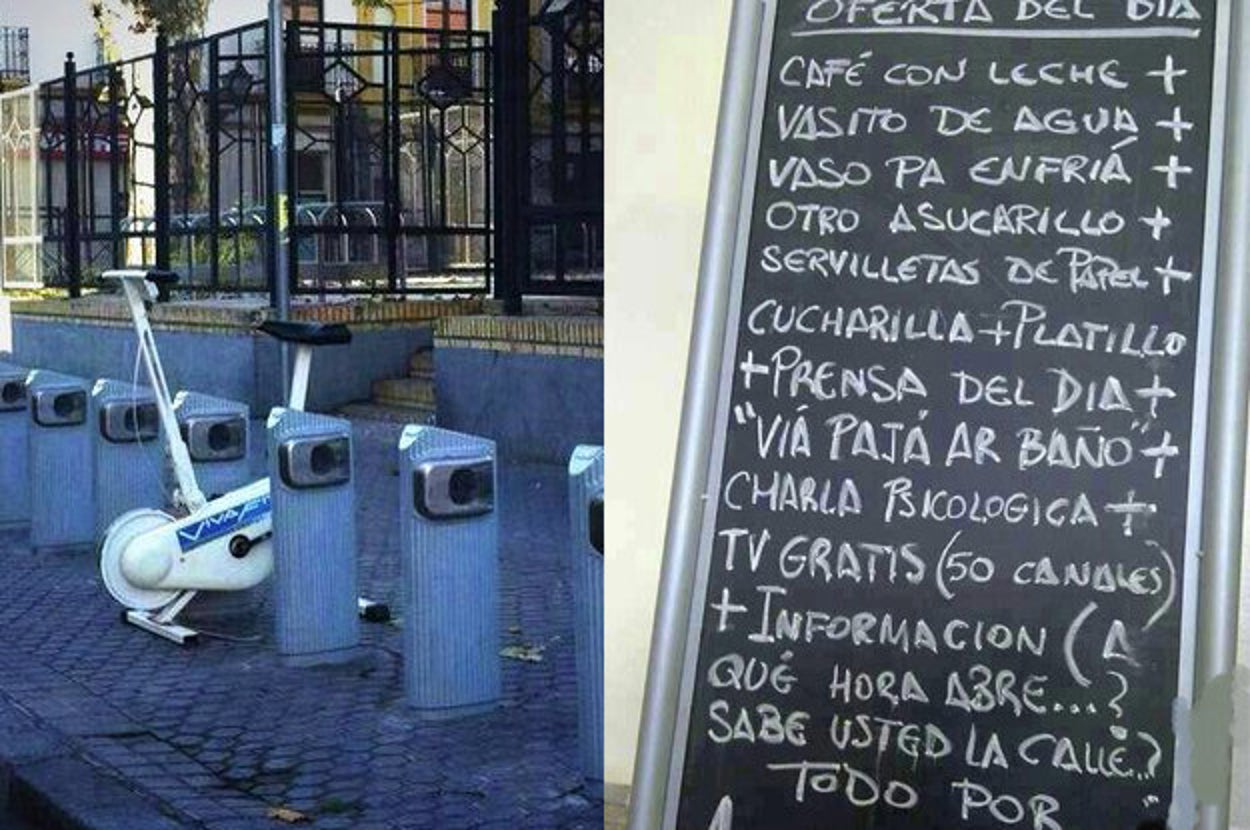 VIVAFIT
OFERTA DEL DIA
CAFÉ CON LECHE +
VASITO DE AGUA +
VASO PA ENFRIÁ +
OTRO ASUCARILLO +
SERVILLETAS DE PAPEL +
CUCHARILLA + PLATILLO
+ PRENSA DEL DIA +
"VIÁ PAJÁ AR BAÑO" +
CHARLA PSICOLOGICA +
TV GRATIS (50 CANALES)
+ INFORMACION (A
QUÉ HORA ABRE...?
SABE USTED LA CALLE..?
TODO POR